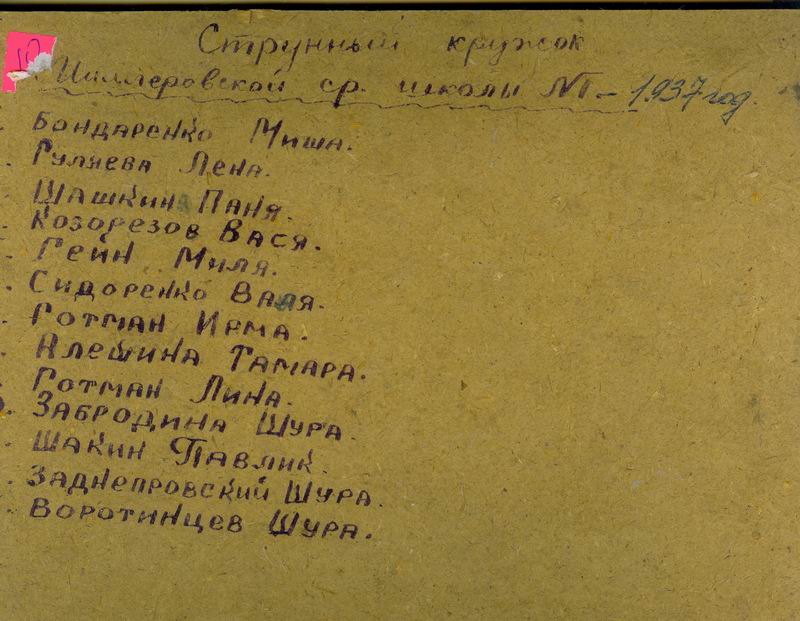 Струнный кружок
Шиллеровской ср. школы №1 – 1937 год.
Бондаренко Миша.
Гуляева Лена.
Шашкин Паня.
Козорезов Вася.
Гейн Миля.
Сидоренко Валя.
Готман Ирма.
Алешина Тамара.
Готман Лина.
Забродина Шура.
Шакин Павлик.
Заднепровский Шура.
Воротинцев Шура.